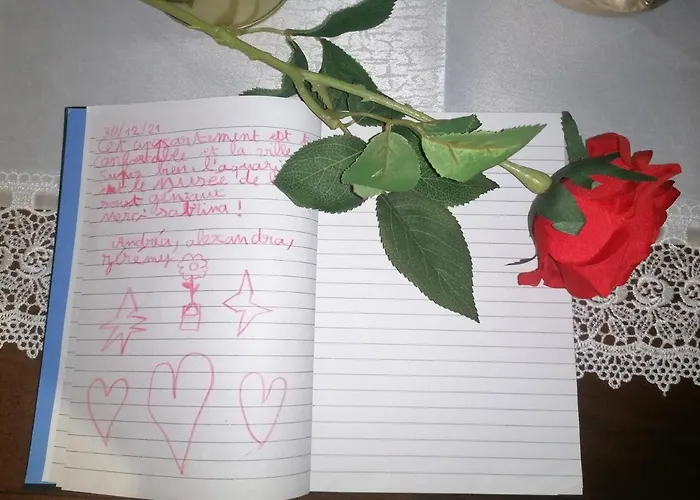 30/12/21
Cet appartement est
confortable et la ville
super bien, l'aquari
le Musée de l
sont géniaux
Merci sabrina !
Andréa, alexandra,
Jérémy